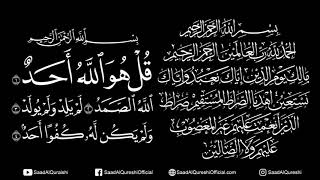 بِسْمِ اللهِ الرَّحْمٰنِ الرَّحِيمِ
الْحَمْدُ لِلّٰهِ رَبِّ الْعَالَمِينَ الرَّحْمٰنِ الرَّحِيمِ
مَالِكِ يَوْمِ الدِّينِ إِيَّاكَ نَعْبُدُ وَإِيَّاكَ
نَسْتَعِينُ اهْدِنَا الصِّرَاطَ الْمُسْتَقِيمَ صِرَاطَ
الَّذِينَ أَنْعَمْتَ عَلَيْهِمْ غَيْرِ الْمَغْضُوبِ
عَلَيْهِمْ وَلَا الضَّالِّينَ
بِسْمِ اللهِ الرَّحْمٰنِ الرَّحِيمِ
قُلْ هُوَ اللهُ أَحَدٌ ١
اللهُ الصَّمَدُ ٢ لَمْ يَلِدْ وَلَمْ يُولَدْ ٣
وَلَمْ يَكُن لَّهُ كُفُوًا أَحَدٌ ٤
SaadAlQuraishi SaadAlQureshiOfficial SaadAlQureshiOfficial SaadAlQureshi